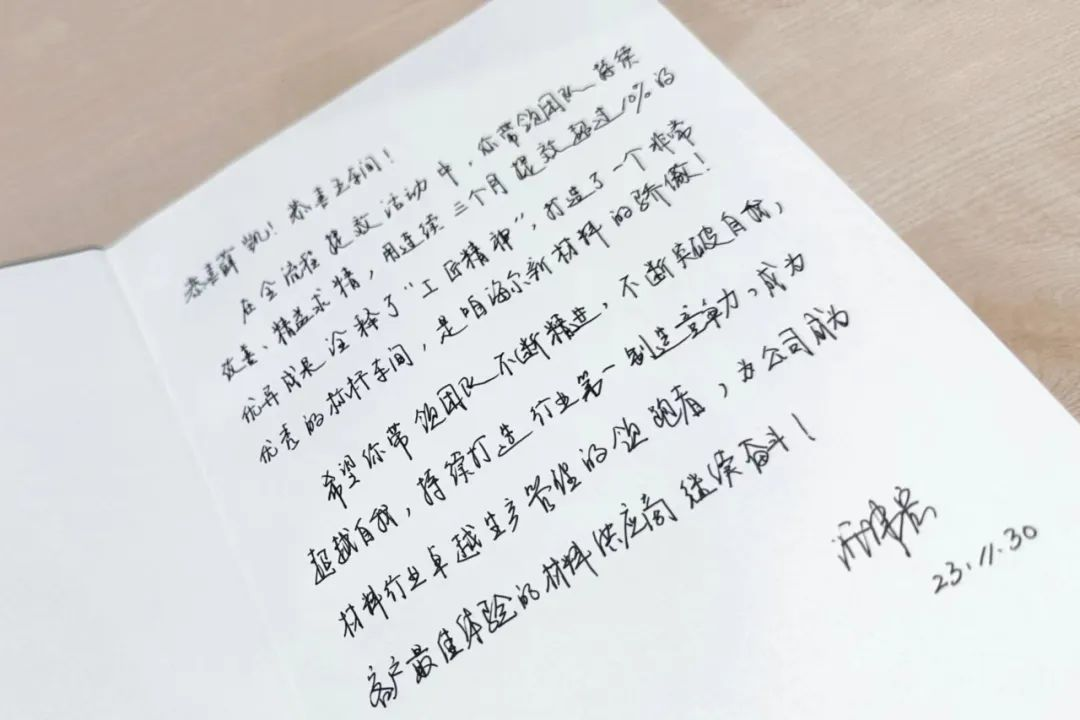 恭喜薛凯！恭喜五车间！
在全流程提效活动中，你带领团队持续
改善、精益求精，用连续三个月提效超过10%的
优异成果诠释了“工匠精神”，打造了一个非常
优秀的标杆车间，是咱海尔新材料的骄傲！
希望你带领团队不断精进，不断突破自我，
超越自我，持续打造行业第一制造竞争力，成为
材料行业卓越生产管理的领跑者，为公司成为
客户最佳体验的材料供应商继续奋斗！
23.11.30